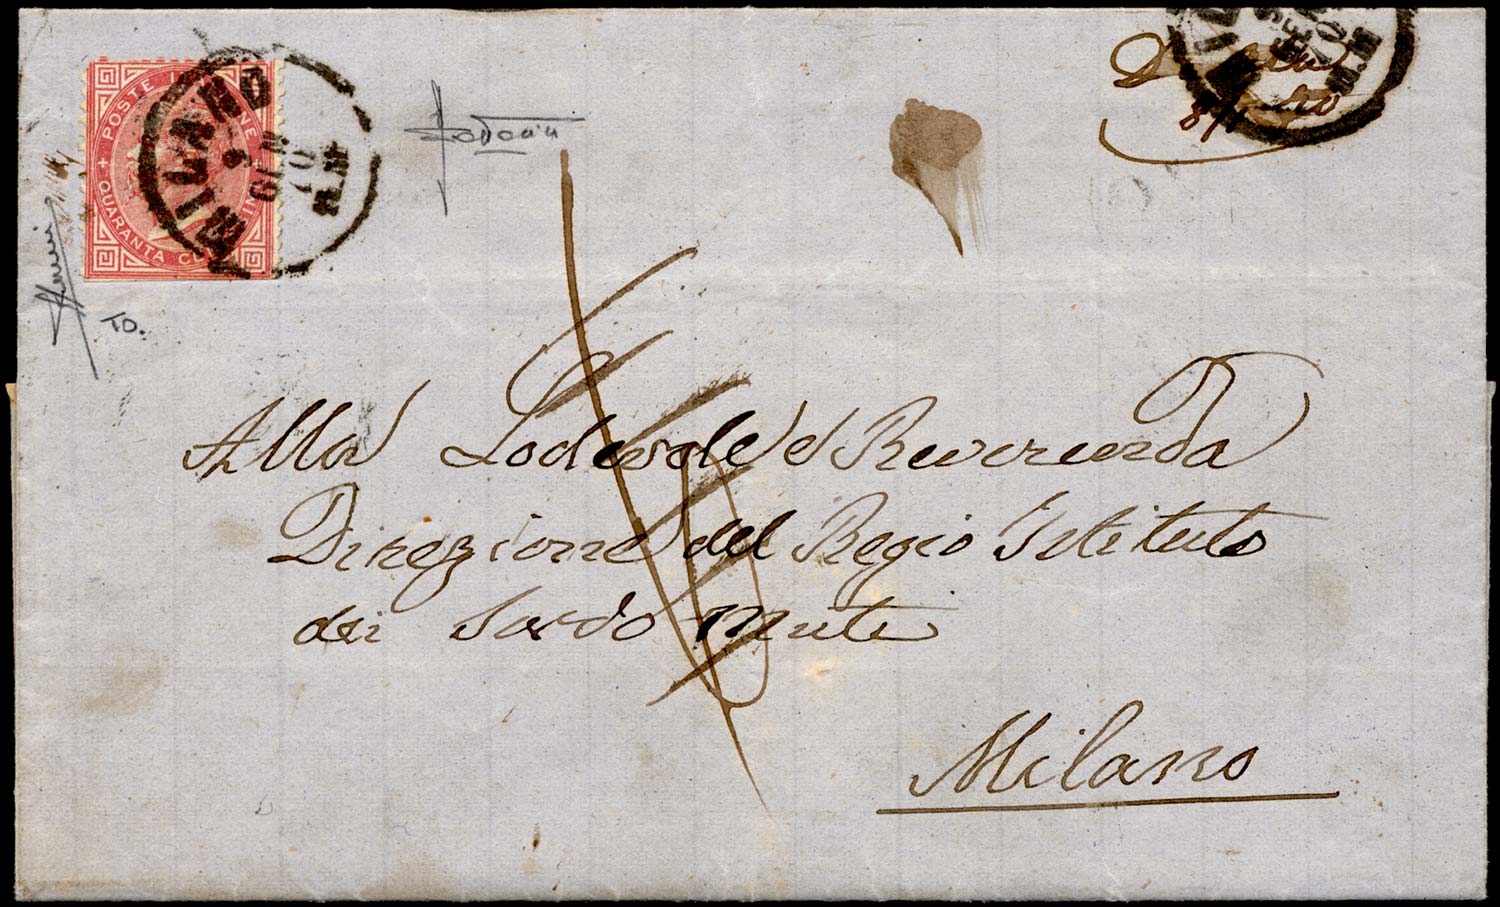 POSTE ITALIANE
QUARANTA CENT
MILANO
9
GIU
70
MILANO
70
8/
TO.
Alla Lodevole e Reverenda
Direzione del Regio Istituto
dei Sordo Muti
Milano